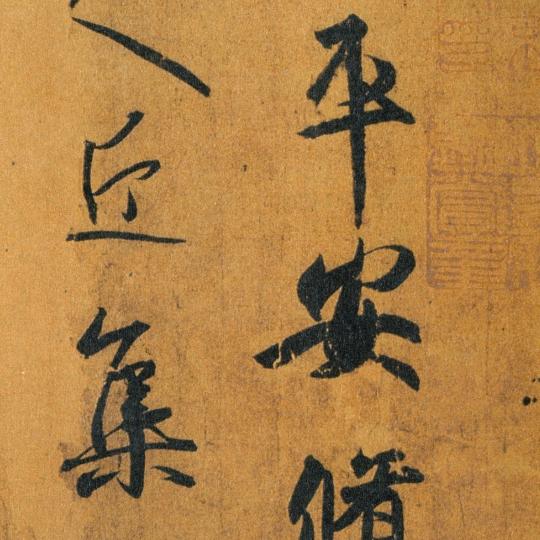 平安脩
近集